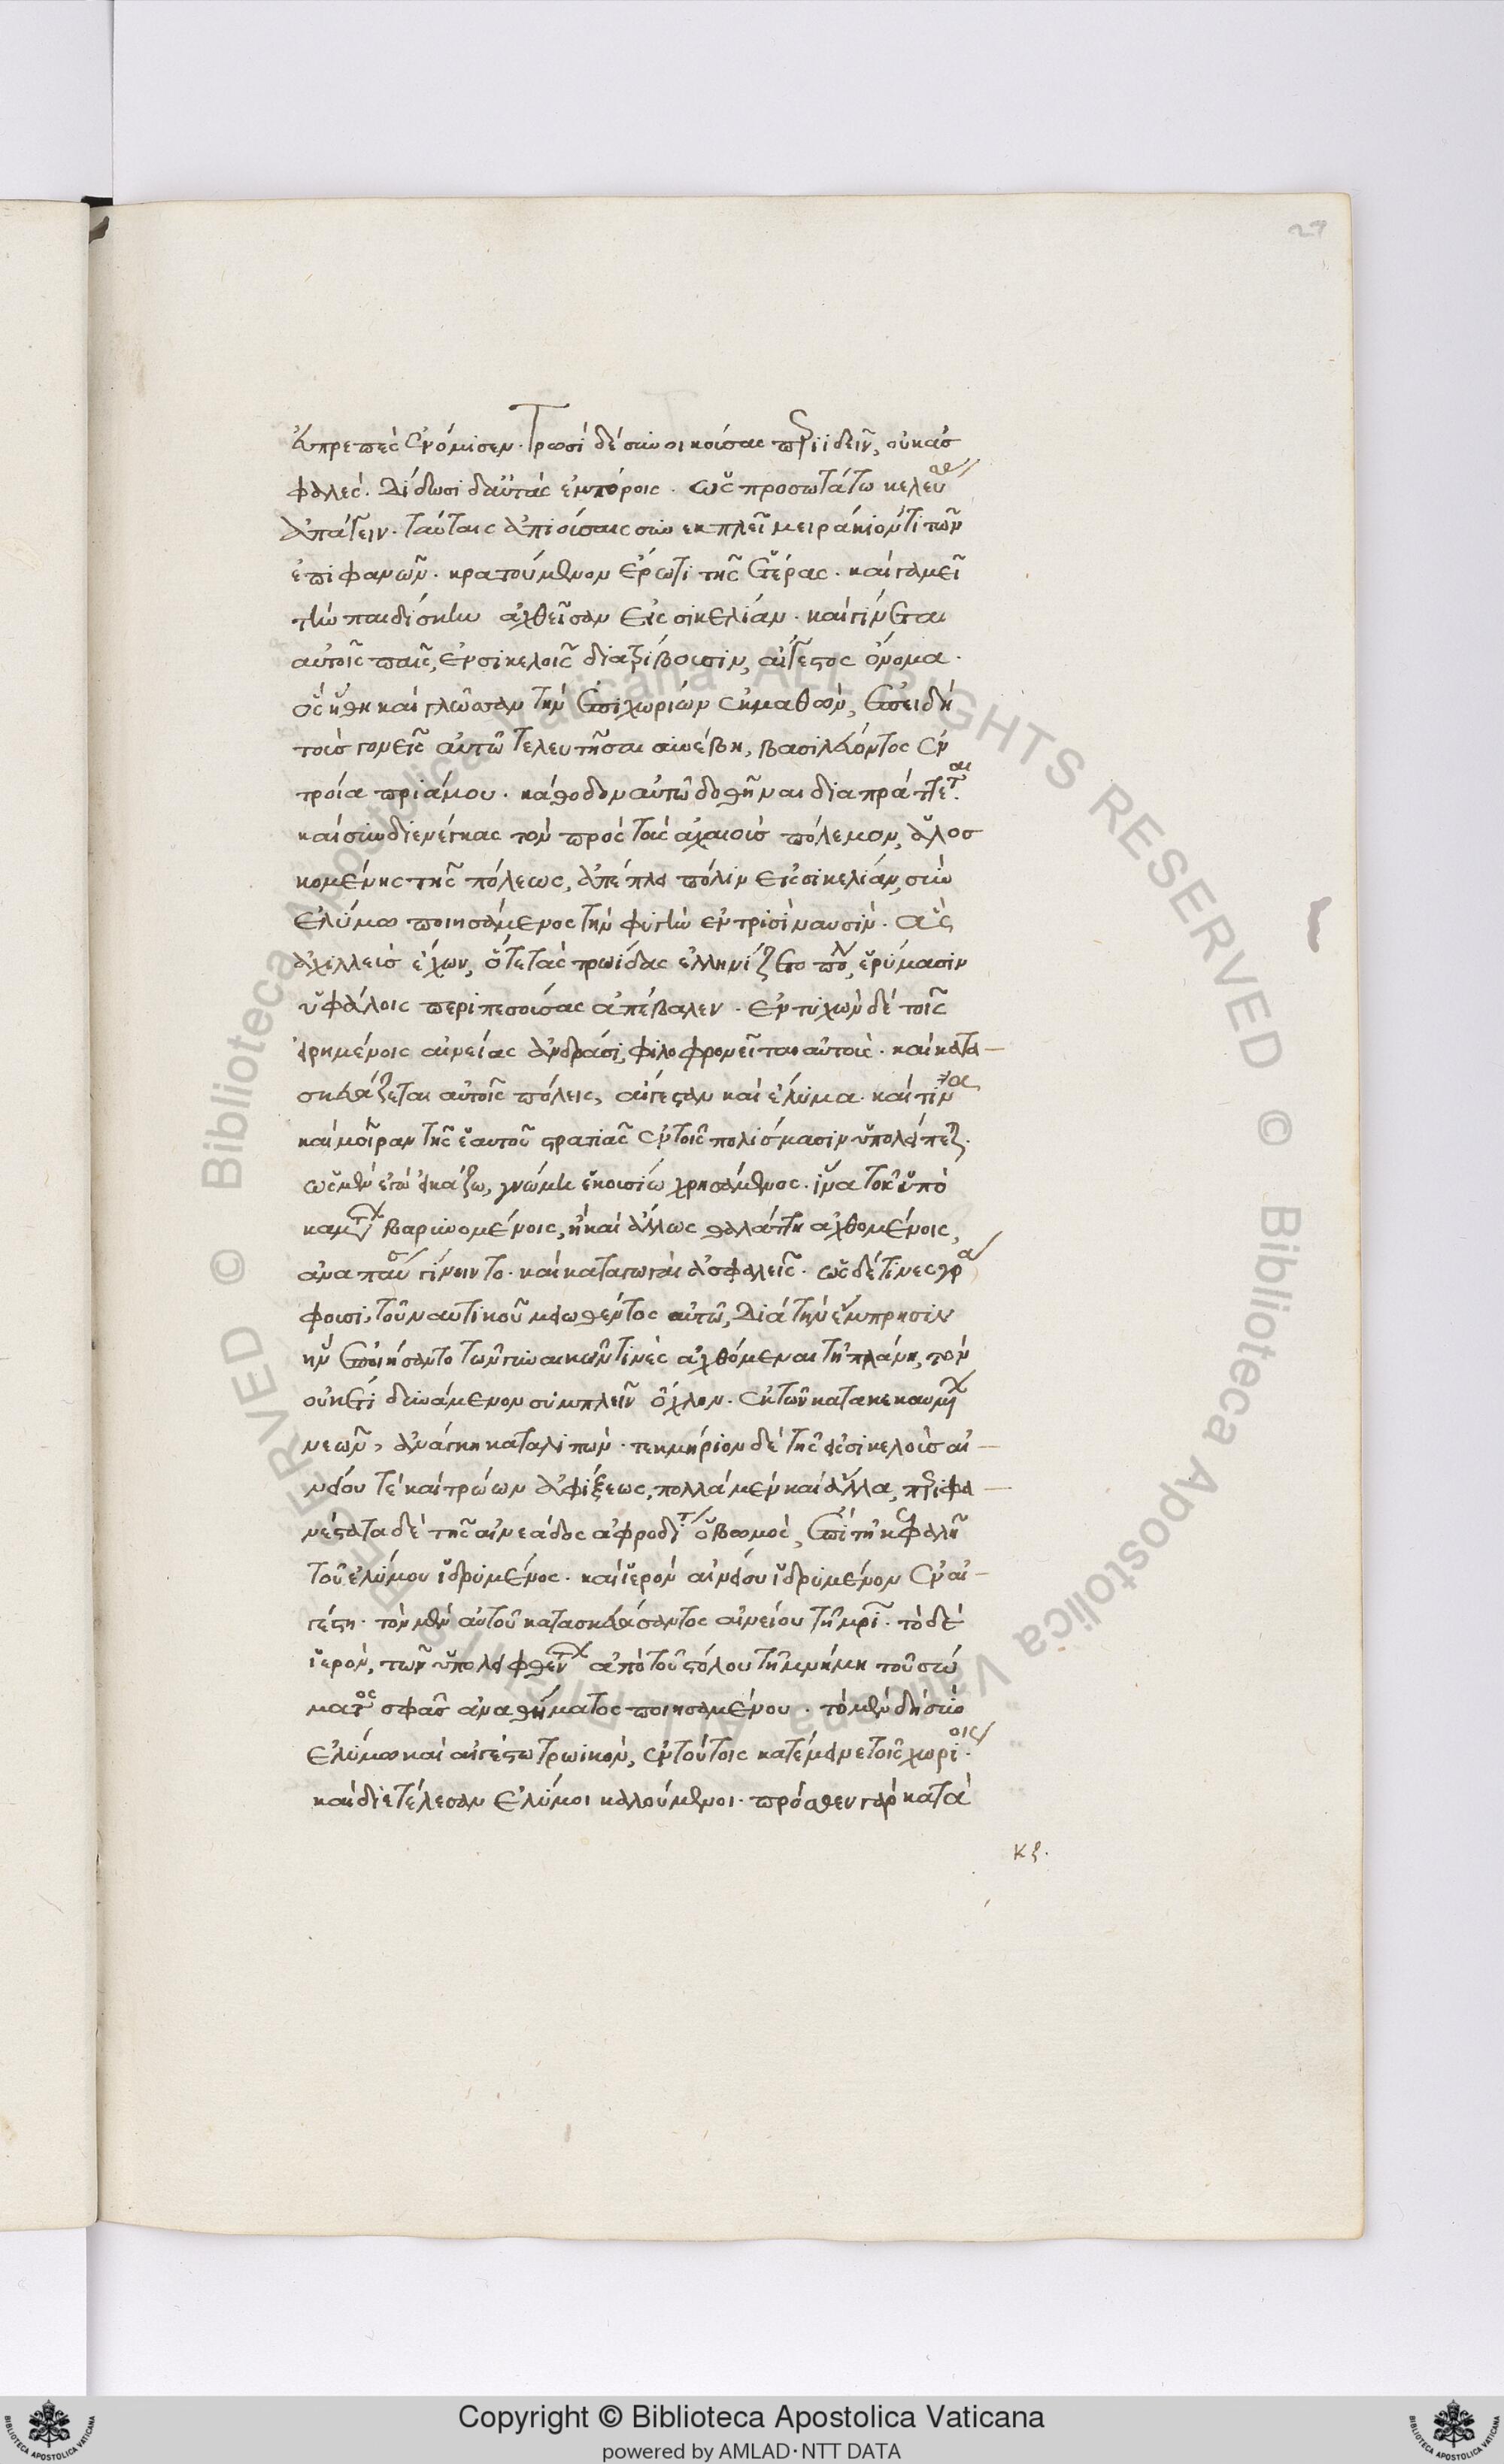 29
εὐπρεπὲς ἐνόμισεν. Τρωσὶ δὲ συνοικούσας περιιδεῖν, οὐκ ἀσ
φαλές. Δίδωσι δ' αὐτὰς ἐμπόροις. ὡς προσωτάτω κελεύσας
ἀπάγειν. ταύταις ἀπιούσαις συνεκπλεῖ μειράκιόν τι τῶν
ἐπιφανῶν. κρατούμενον ἔρωτι τῆς ἑτέρας. καὶ γαμεῖ
τὴν παιδίσκην ἀχθεῖσαν εἰς σικελίαν. καὶ γίνεται
αὐτοῖς παῖς, ἐν σικελοῖς διατρίβουσιν, αἴγεστος ὄνομα.
ὃς ἤθη καὶ γλῶσσαν τὴν ἐπιχωρίων ἐκμαθὼν, ἐπειδὴ
τοὺς γονεῖς αὐτῷ τελευτῆσαι συνέβη, βασιλεύοντος ἐν
τροίᾳ πριάμου. κάθοδον αὐτῷ δοθῆναι διαπράττεται.
καὶ συνδιενέγκας τὸν πρὸς τοὺς ἀχαιοὺς πόλεμον, ἁλισ
κομένης τῆς πόλεως, ἀπέπλει πάλιν εἰς σικελίαν, σὺν
ἐλύμῳ ποιησάμενος τὴν φυγὴν ἐν τρισὶ ναυσὶν. ἃς
ἀχιλλεὺς ἔχων, ὅτε τὰς τρωίδας ἐληίζετο πόλεις, ἑρύμασιν
ὑφάλοις περιπεσούσας ἀπέβαλεν. ἐντυχὼν δὲ τοῖς
εἰρημένοις αἰνείας ἀνδράσι, φιλοφρονεῖται αὐτοὺς. καὶ κατα-
σκευάζεται αὐτοῖς πόλεις, αἴγεσταν καὶ ἔλυμα. καὶ τινα
καὶ μοῖραν τῆς ἑαυτοῦ στρατιᾶς ἐν τοῖς πολίσμασιν ὑπολείπεται.
ὡς μὲν ἐγὼ εἰκάζω, γνώμῃ ἑκουσίῳ χρησάμενος. ἵνα τοῖς ὑπὸ
καμάτων βαρυνομένοις, ἢ καὶ ἄλλως θαλάττῃ ἀχθομένοις,
ἀνάπαυσις γένοιντο. καὶ καταγωγαὶ ἀσφαλεῖς. ὡς δέ τινες γρά
φουσι, τοῦ ναυτικοῦ μειωθέντος αὐτῷ, διὰ τὴν ἔμπρησιν
ἣν ἐποιήσαντο τῶν γυναικῶν τινὲς ἀχθόμεναι τῇ πλάνῃ, τὸν
οὐκέτι δυνάμενον συμπλεῖν ὄχλον. ἐκ τῶν κατακεκαυμένων
νεῶν, ἀνάγκῃ καταλιπών. τεκμήριον δὲ τῆς εἰς σικελοὺς αἰ-
νείου τὲ καὶ τρώων ἀφίξεως, πολλὰ μὲν καὶ ἄλλα, περιφα-
νέστατα δὲ τῆς αἰνεάδος ἀφροδίτης ὁ βωμὸς, ἐπὶ τῇ κεφαλῇ
τοῦ ἐλύμου ἱδρυμένος. καὶ ἱερὸν αἰνείου ἱδρυμένον ἐν αἰ-
γέστῃ. τὸν μὲν αὐτοῦ κατασκευάσαντος αἰνείου τῇ μρὶ. τὸ δὲ
ἱερὸν, τῶν ὑπολειφθέντων ἀπὸ τοῦ στόλου τῇ μνήμῃ τοῦ σώ
ματος σφᾶς ἀναθήματος ποιησαμένου. τὸ μὲν δὴ σὺν
ἐλύμῳ καὶ αἰγέστῳ τρωικὸν, ἐν τούτοις κατέμεινε τοῖς χωρίοις.
καὶ διετέλεσαν ἔλυμοι καλούμενοι. πρόσθεν γὰρ κατὰ
κς.
Copyright © Biblioteca Apostolica Vaticana
powered by AMLAD·NTT DATA